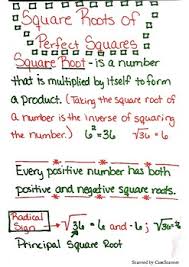 Square Roots of
Perfect Squares
Square Root - is a number
that is multiplied by itself to form
a product. (Taking the square root of
a number is the inverse of squaring
the number.) 6² = 36 √36 = 6
Every positive number has both
positive and negative square roots.
Radical
Sign → √36 = 6 and -6; √36 = ±6
Principal Square Root
Scanned by CamScanner